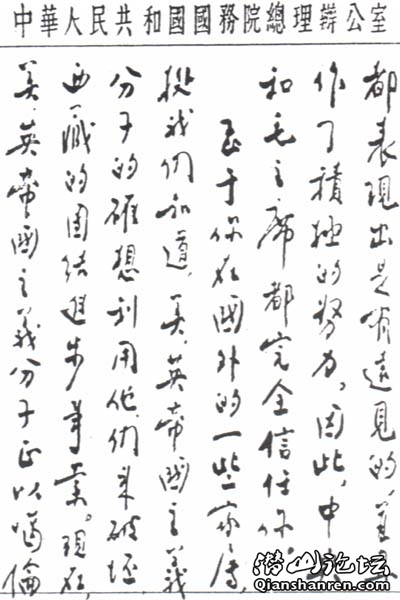 中華人民共和國國務院總理辦公室
都表現出是有遠見的，並且
作了積極的努力，因此，中央
和毛主席都完全信任你。
至于你在國外的一些家屬，
據我們知道，美、英帝國主義
分子的確想利用他們來破壞
西藏的團結進步事業。現在，
美、英帝國主義分子正以噶倫
潜山论坛
Qianshanren.com